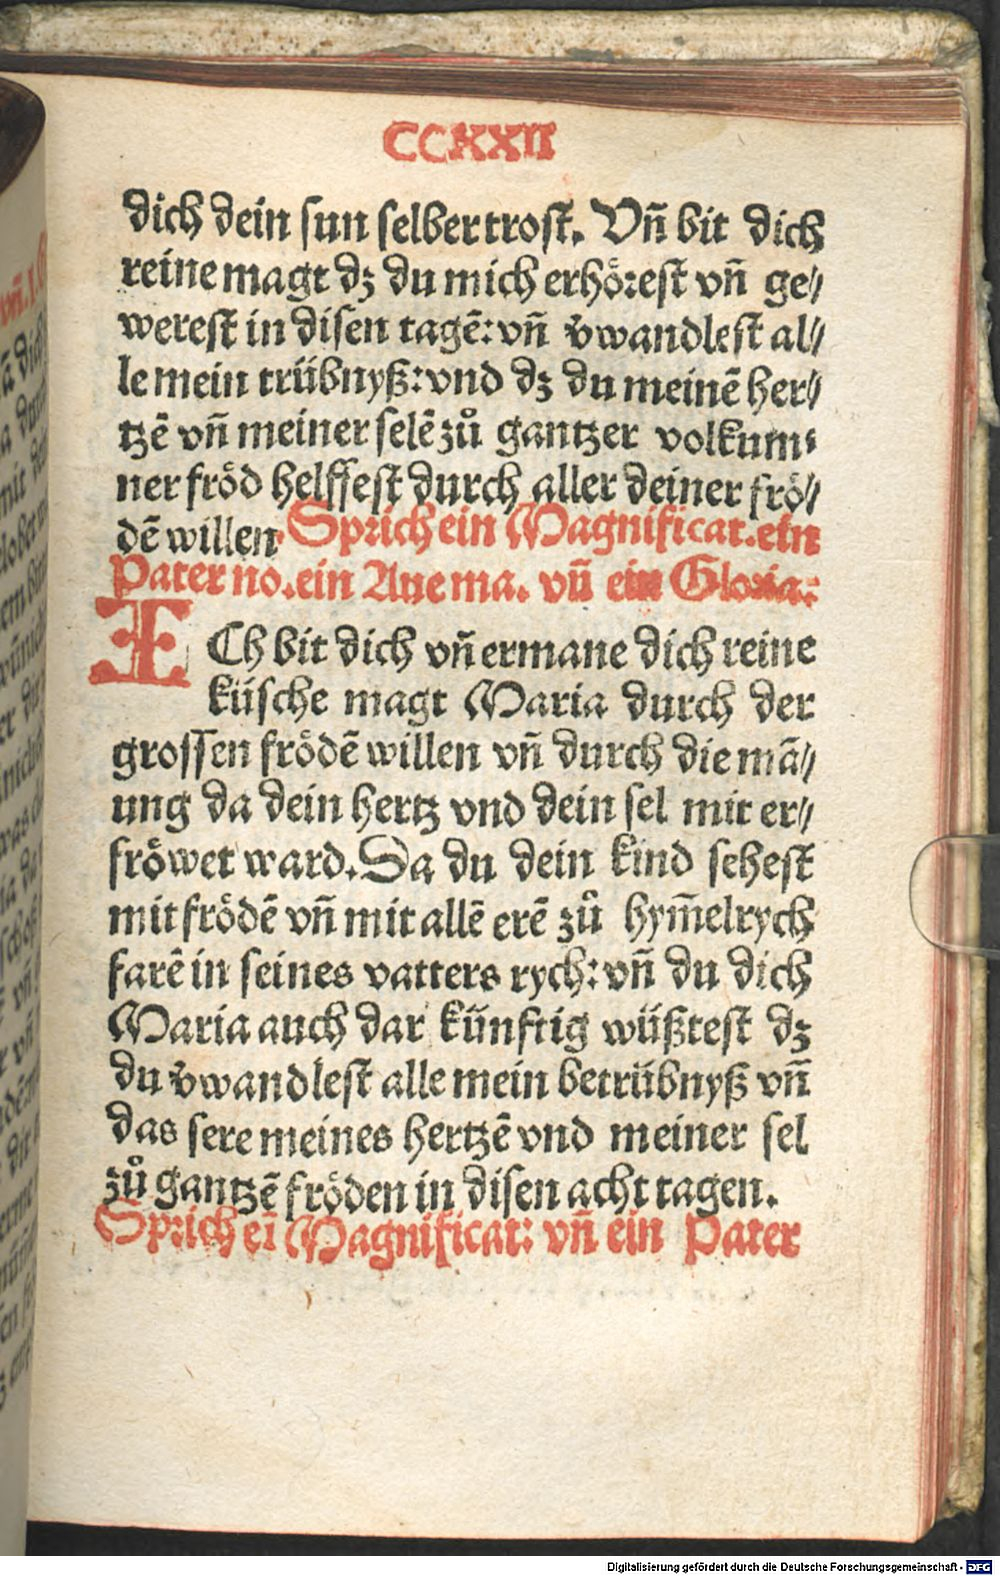 CCXXII
dich dein sun selber trost. Vñ bit dich
reine magt dz du mich erhörest vñ ge⸗
werest in disen tagē: vñ v̉wandlest al⸗
le mein trübnyß: vnd dz du meinē her⸗
tzē vñ meiner selē zů gantzer volkum⸗
ner fröd helffest durch aller deiner frö⸗
dē willen Sprich ein Magnificat. ein
Pater no. ein Aue ma. vñ ein Gloria:
ICh bit dich vñ ermane dich reine
küsche magt Maria durch der
grossen frödē willen vñ durch die mā⸗
ung da dein hertz vnd dein sel mit er⸗
fröwet ward. Da du dein kind sehest
mit frödē vñ mit allē erē zů hym̄elrych
farē in seines vatters rych: vñ du dich
Maria auch dar künftig wüßtest dz
du v̉wandlest alle mein betrübnyß vñ
das sere meines hertzē vnd meiner sel
zů gantzē fröden in disen acht tagen.
Sprich eī Magnificat: vñ ein Pater
Digitalisierung gefördert durch die Deutsche Forschungsgemeinschaft - DFG